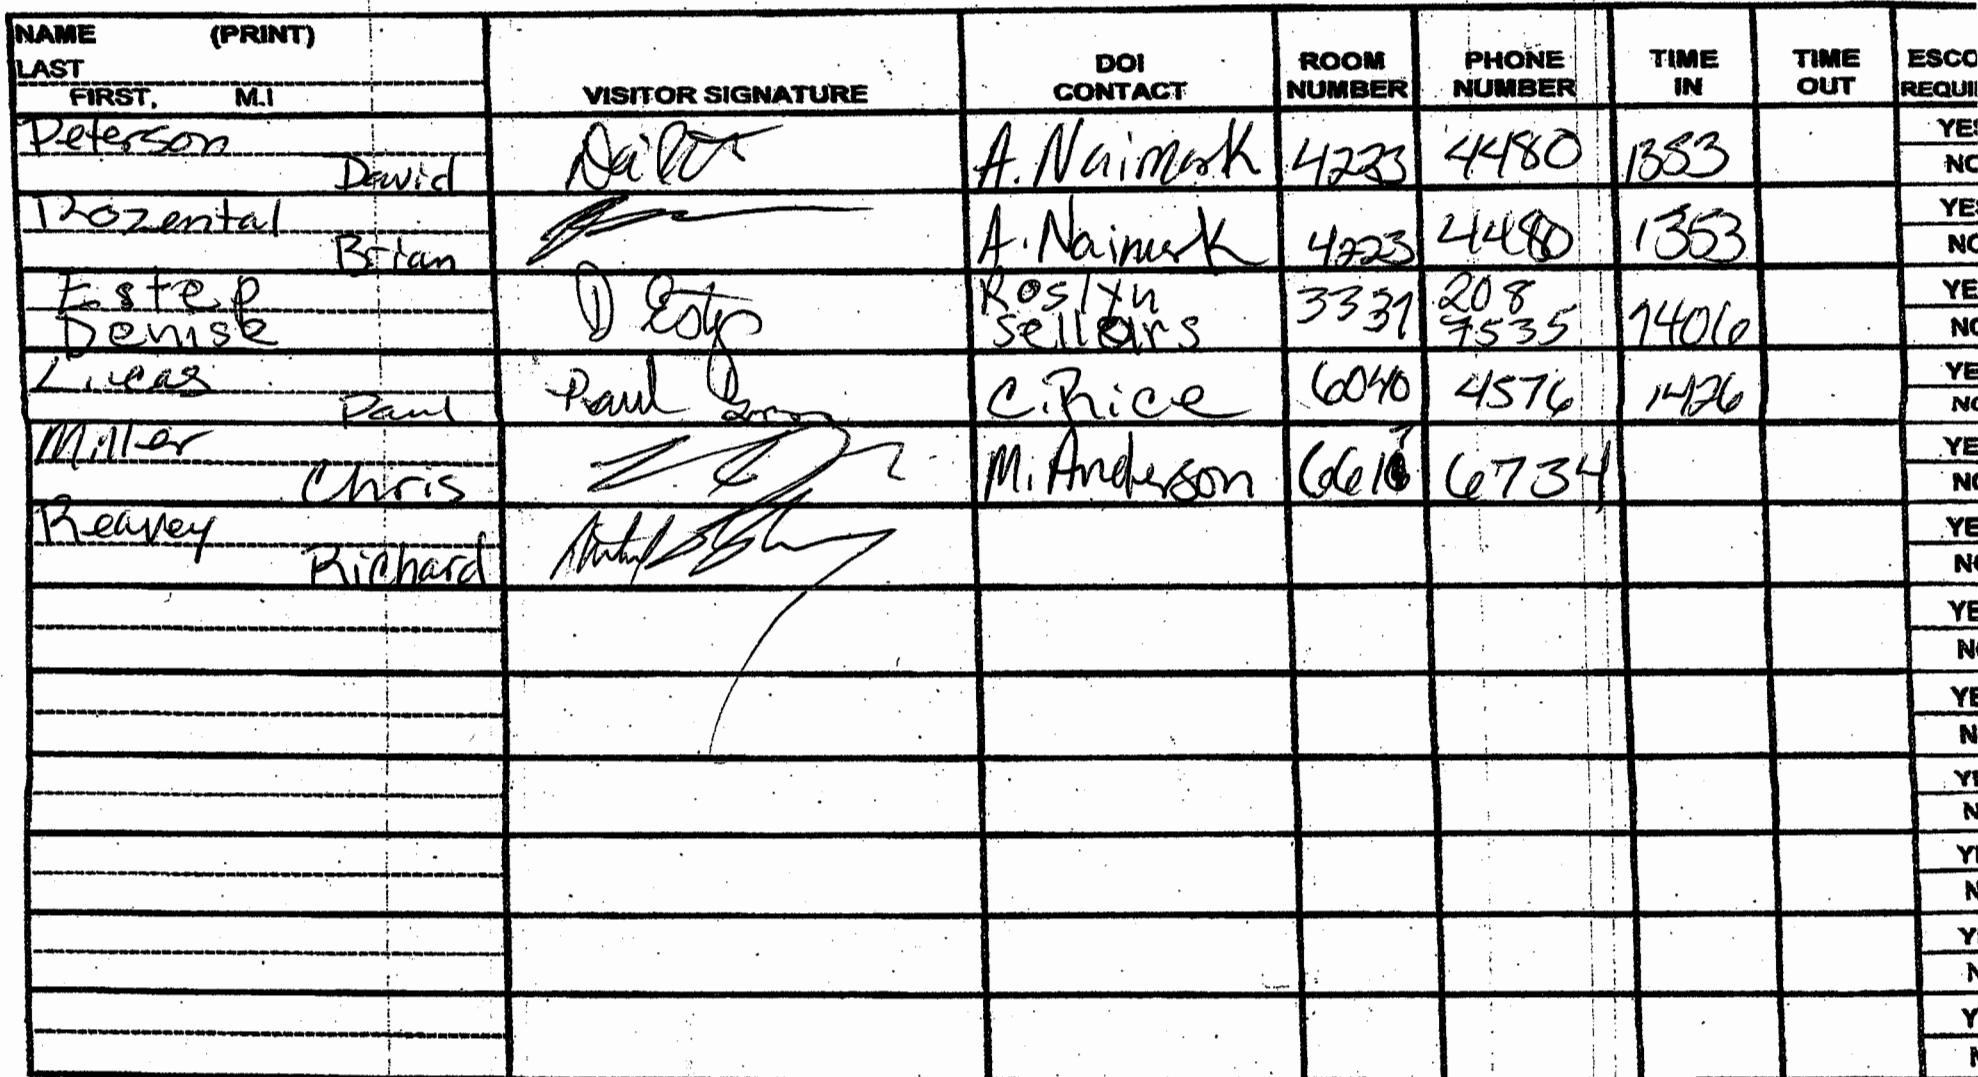 NAME (PRINT)
LAST
FIRST, M.I
VISITOR SIGNATURE
DOI CONTACT
ROOM NUMBER
PHONE NUMBER
TIME IN
TIME OUT
ESCO
REQUI
Peterson
David
A. Naimark 4223 4480 1353
YES
NO
Rozental
Brian
A. Naimark 4223 4480 1353
YES
NO
Estep
Denise
D Estep
Roslyn
Sellars
3331
208
7535
1406
YE
NO
Lucas
Paul
Paul
C. Rice 6040 4576 1426
YE
NO
Miller
Chris
M. Anderson 6617 6734
YE
NO
Reavey
Richard
YE
NO
YE
NO
YE
N
YE
N
YE
N
YE
N
Y
N